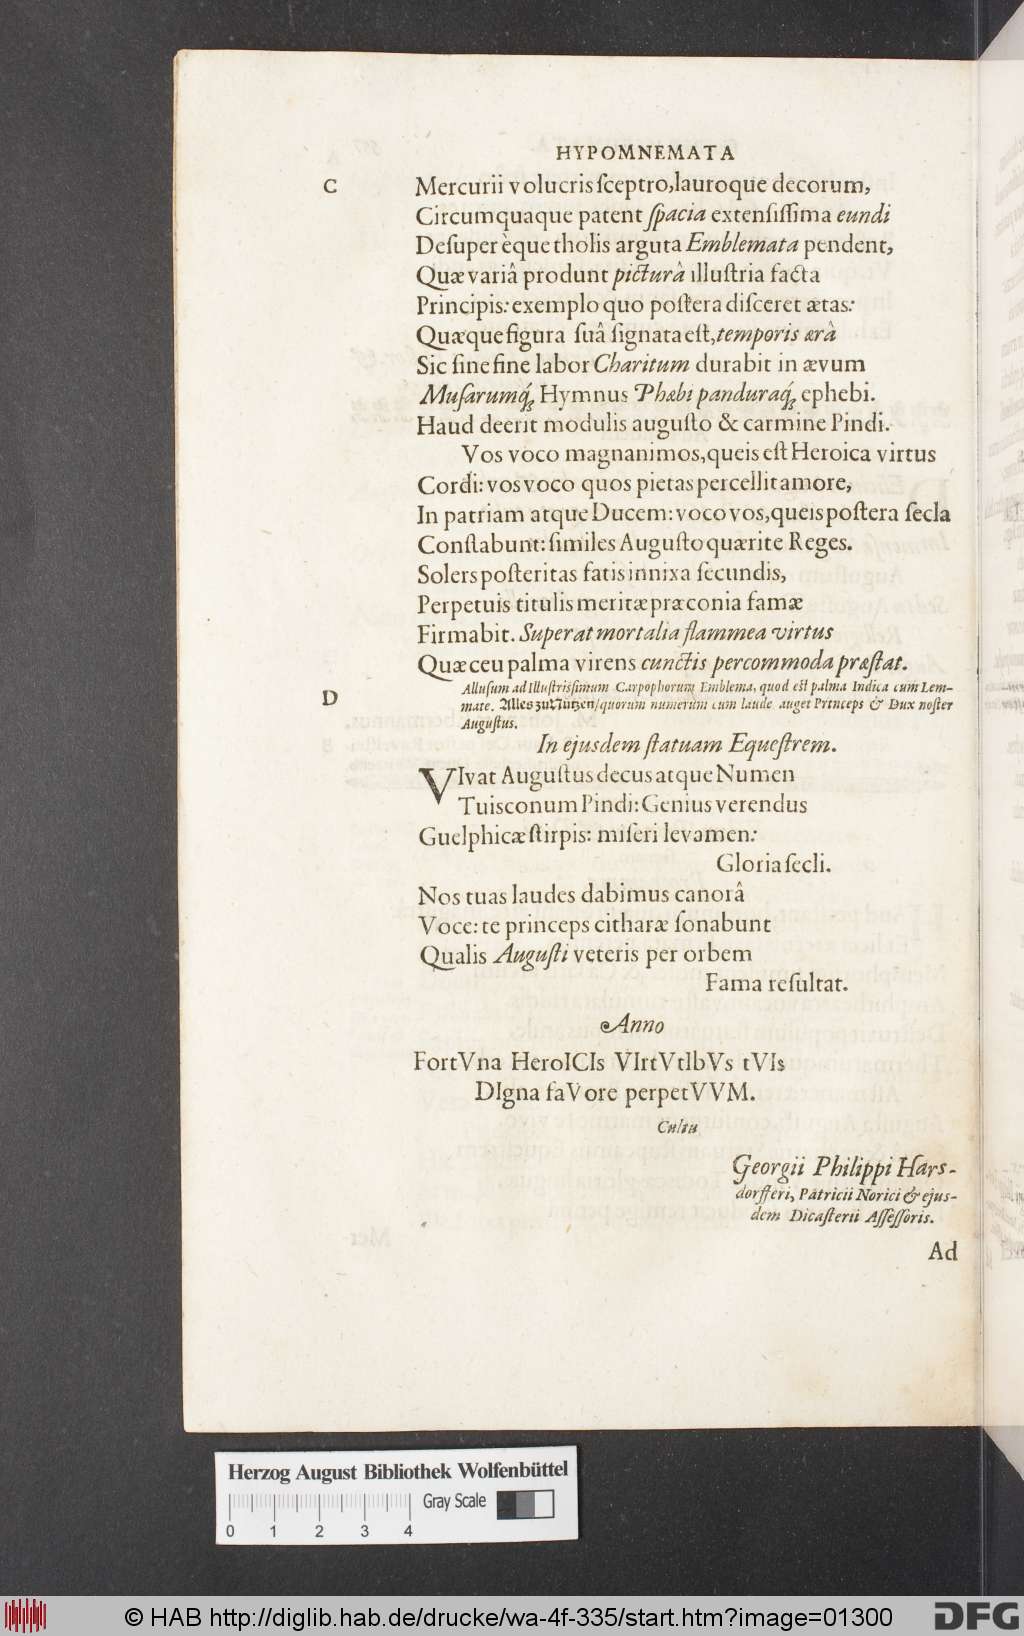 HYPOMNEMATA
C
Mercurii volucris ſceptro, lauroque decorum,
Circumquaque patent ſpacia extenſiſſima eundi
Deſuper èque tholis arguta Emblemata pendent,
Quæ variâ produnt picturâ illuſtria facta
Principis: exemplo quo poſtera diſceret ætas:
Quæque figura ſuâ ſignata eſt, temporis ærâ
Sic ſine fine labor Charitum durabit in ævum
Muſarumq́; Hymnus Phœbi panduraq́; ephebi.
Haud deerit modulis auguſto & carmine Pindi.
Vos voco magnanimos, queis eſt Heroica virtus
Cordi: vos voco quos pietas percellit amore,
In patriam atque Ducem: voco vos, queis poſtera ſecla
Conſtabunt: ſimiles Auguſto quærite Reges.
Solers poſteritas fatis innixa ſecundis,
Perpetuis titulis meritæ præconia famæ
Firmabit. Superat mortalia flammea virtus
Quæ ceu palma virens cunctis percommoda præſtat.
D
Alluſum ad Illuſtriſſimum Carpophorum Emblema, quod eſt palma Indica cum Lem-
mate. Alles zu Nutzen/ quorum numerum cum laude auget Princeps & Dux noſter
Auguſtus.
In ejusdem ſtatuam Equeſtrem.
VIvat Auguſtus decus atque Numen
Tuisconum Pindi: Genius verendus
Guelphicæ ſtirpis: miſeri levamen:
Gloria ſecli.
Nos tuas laudes dabimus canorâ
Voce: te princeps citharæ ſonabunt
Qualis Auguſti veteris per orbem
Fama reſultat.
Anno
FortVna HeroICIs VIrtVtIbVs tVIs
DIgna faVore perpetVVM.
Cultu
Georgii Philippi Hars-
dorfferi, Patricii Norici & ejus-
dem Dicaſterii Aſſeſſoris.
Ad
Herzog August Bibliothek Wolfenbüttel
Gray Scale
0 1 2 3 4
© HAB http://diglib.hab.de/drucke/wa-4f-335/start.htm?image=01300
DFG